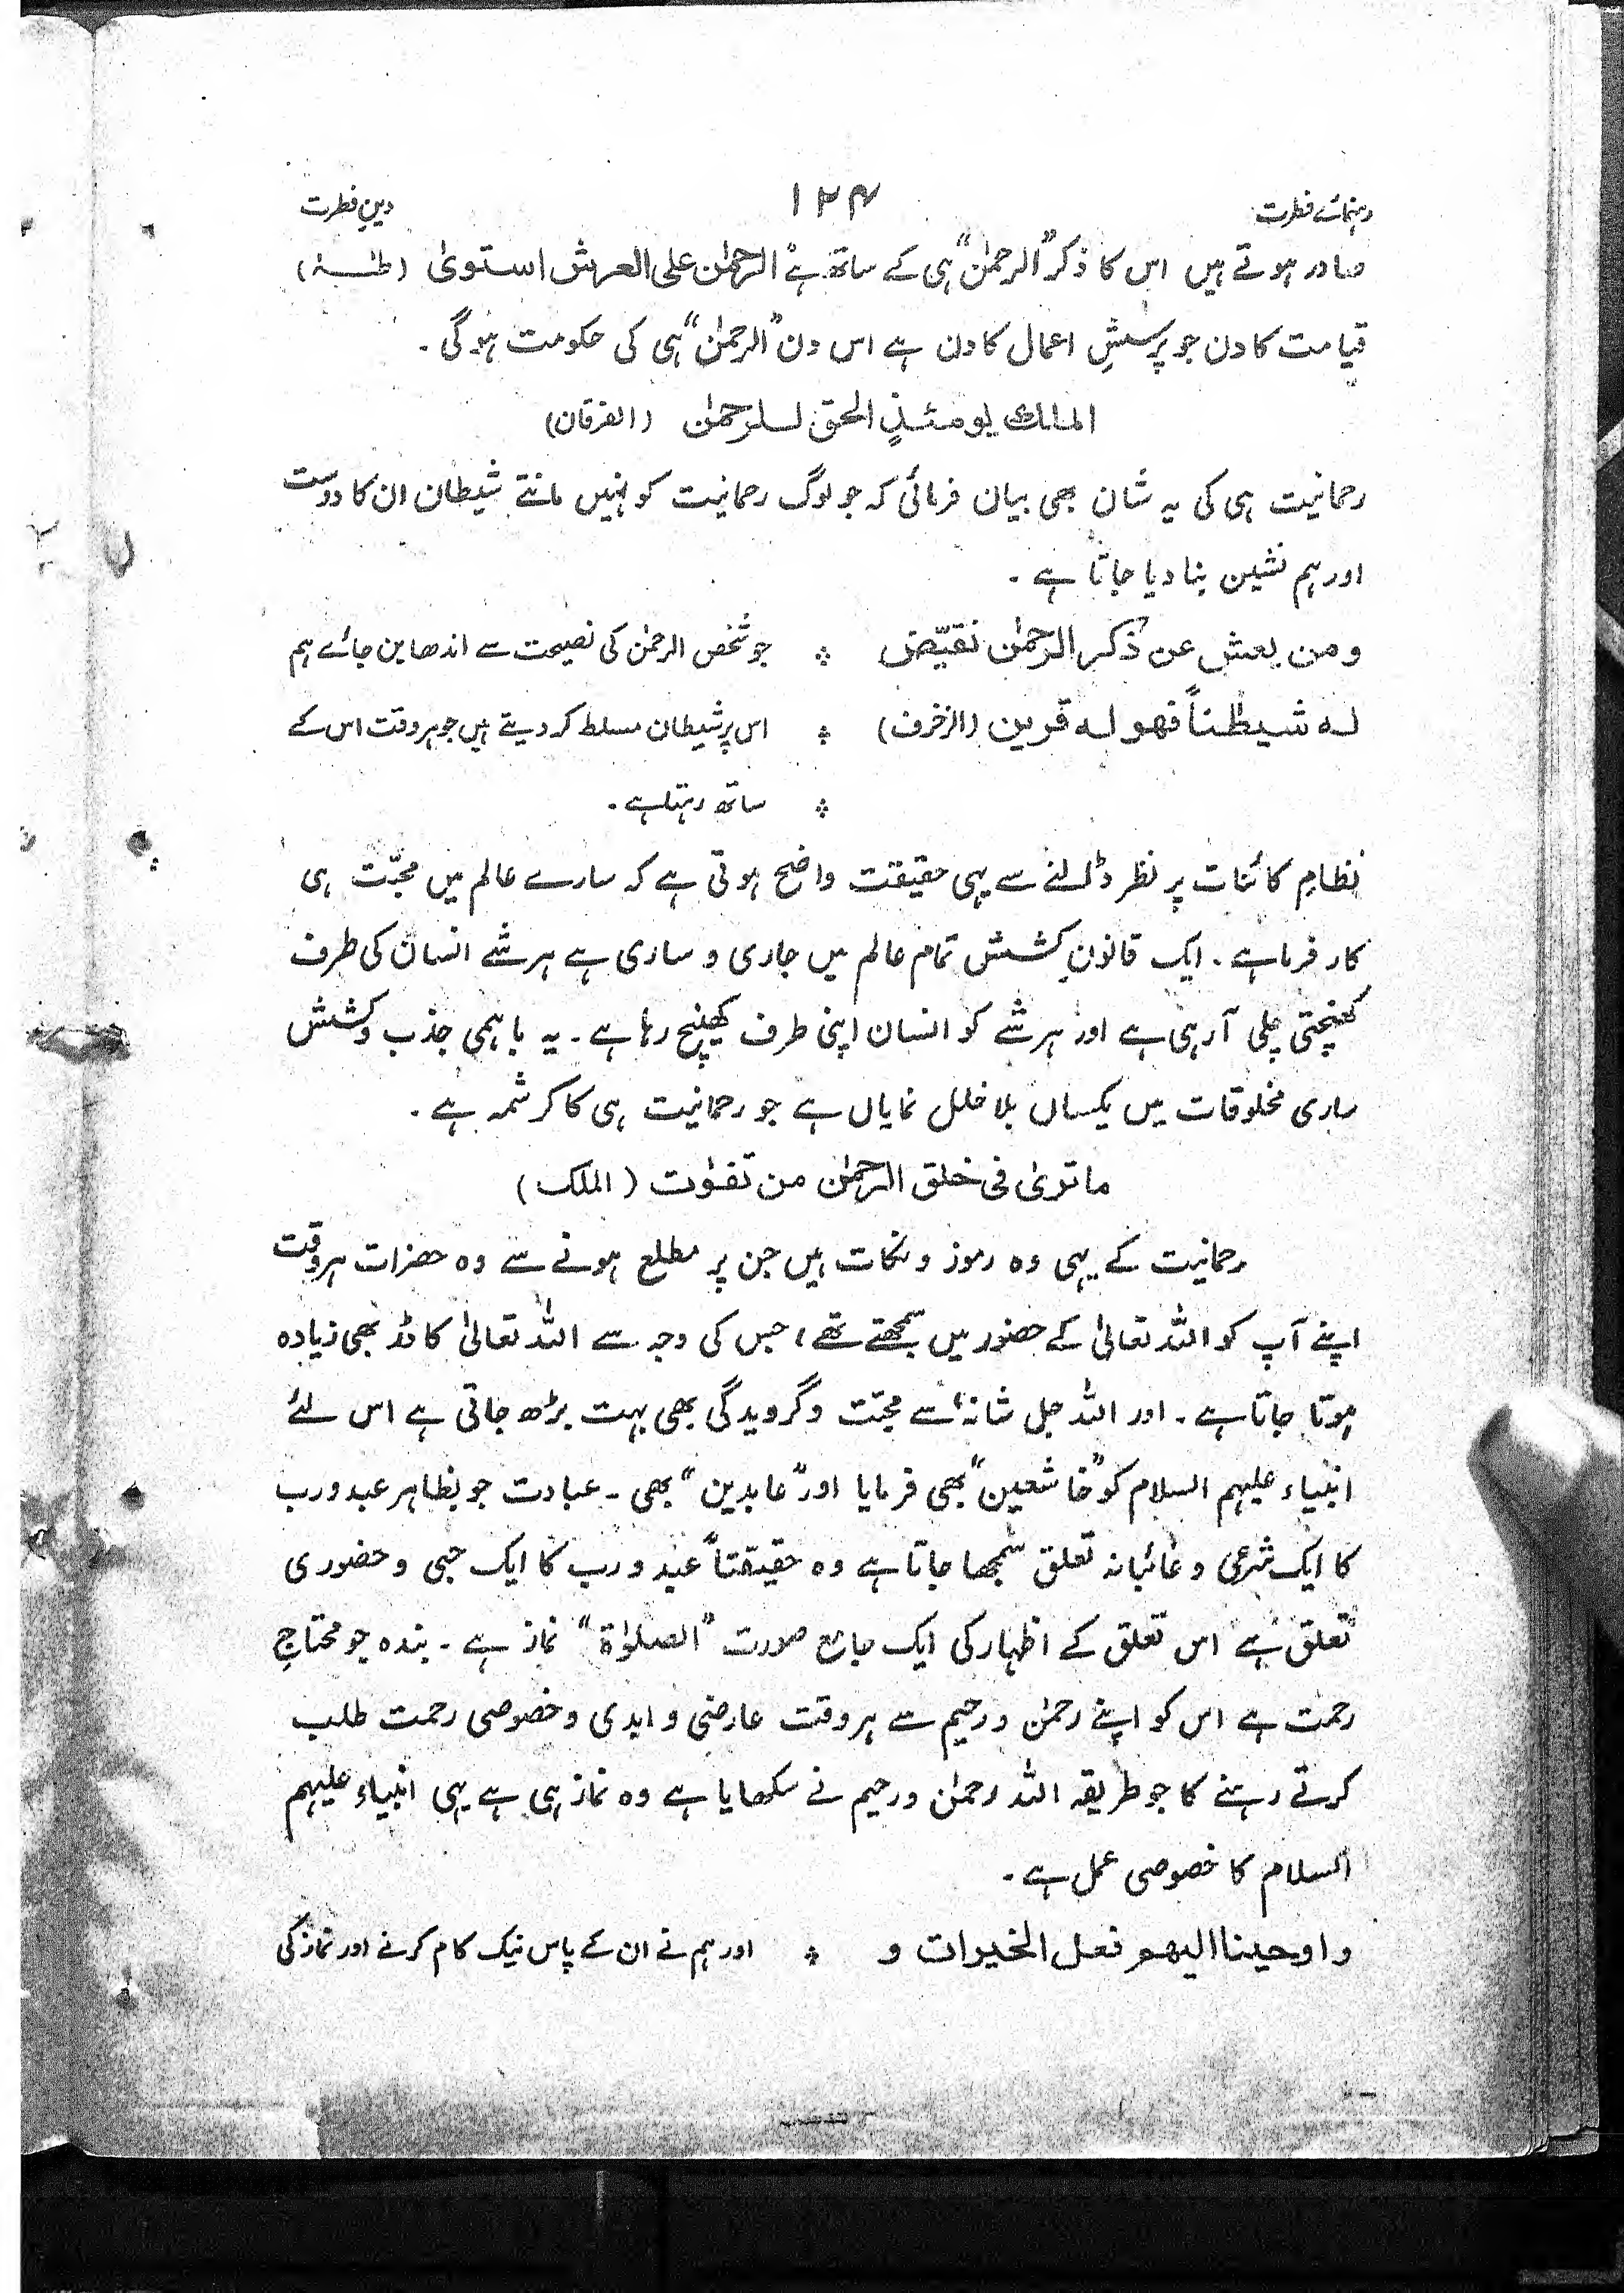 رہنمائے فطرت ۱۲۴ دینِ فطرت
صادر ہوتے ہیں اس کا ذکر ”الرحمٰن“ ہی کے ساتھ ہے ”الرحمٰن علی العرش استویٰ (طٰہٰ)
قیامت کا دن جو پرسشِ اعمال کا دن ہے اس دن ”الرحمٰن“ ہی کی حکومت ہوگی ۔
الملك یومئذٍ الحق للرحمٰن (الفرقان)
رحمانیت ہی کی یہ شان بھی بیان فرمائی کہ جو لوگ رحمانیت کو نہیں مانتے شیطان ان کا دوست
اور ہم نشین بنا دیا جاتا ہے ۔
ومن یعش عن ذکر الرحمٰن نقیّض ؞ جو شخص الرحمٰن کی نصیحت سے اندھا بن جائے ہم
لہ شیطٰناً فھو لہ قرین (الزخرف) ؞ اس پر شیطان مسلط کر دیتے ہیں جو ہر وقت اس کے
؞ ساتھ رہتا ہے ۔
نظامِ کائنات پر نظر ڈالنے سے یہی حقیقت واضح ہوتی ہے کہ سارے عالم میں محبّت ہی
کار فرما ہے ۔ ایک قانونِ کشش تمام عالم میں جاری و ساری ہے ہر شے انسان کی طرف
کھنچتی چلی آرہی ہے اور ہر شے کو انسان اپنی طرف کھینچ رہا ہے ۔ یہ باہمی جذب و کشش
ساری مخلوقات میں یکساں بلا خلل نمایاں ہے جو رحمانیت ہی کا کرشمہ ہے ۔
ما تریٰ فی خلق الرحمٰن من تفٰوت (الملک)
رحمانیت کے یہی وہ رموز و نکات ہیں جن پر مطلع ہونے سے وہ حضرات ہر وقت
اپنے آپ کو اللہ تعالیٰ کے حضور میں سمجھتے تھے، جس کی وجہ سے اللہ تعالیٰ کا ڈر بھی زیادہ
ہوتا جاتا ہے ۔ اور اللہ جل شانہٗ سے محبّت و گرویدگی بھی بہت بڑھ جاتی ہے اس لئے
انبیاء علیہم السلام کو ”خاشعین“ بھی فرمایا اور ”عابدین“ بھی ۔ عبادت جو بظاہر عبد و رب
کا ایک شرعی و غائبانہ تعلق سمجھا جاتا ہے وہ حقیقتاً عبد و رب کا ایک حبی و حضوری
تعلق ہے اس تعلق کے اظہار کی ایک جامع صورت ”الصلوٰۃ“ نماز ہے ۔ بندہ جو محتاجِ
رحمت ہے اس کو اپنے رحمٰن و رحیم سے ہر وقت عارضی و ابدی و خصوصی رحمت طلب
کرتے رہنے کا جو طریقہ اللہ رحمٰن و رحیم نے سکھایا ہے وہ نماز ہی ہے یہی انبیاء علیہم
السلام کا خصوصی عمل ہے ۔
واوحینا الیھم فعل الخیرات و ؞ اور ہم نے ان کے پاس نیک کام کرنے اور نماز کی